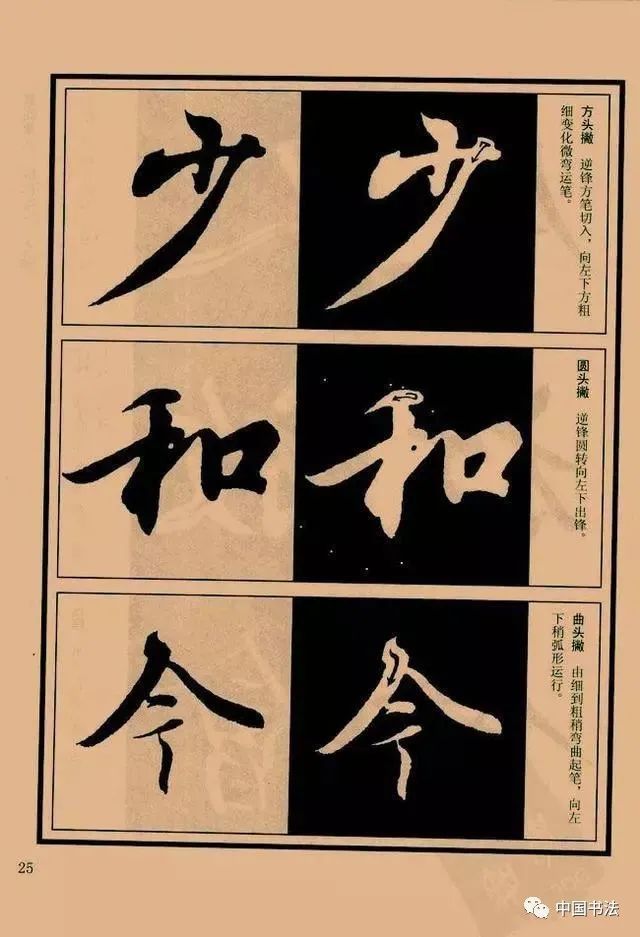 少
少
方头撇 逆锋方笔切入，向左下方粗
细变化微弯运笔。
和
和
圆头撇 逆锋圆转向左下出锋。
今
今
曲头撇 由细到粗稍弯曲起笔，向左
下稍弧形运行。
25
中国书法